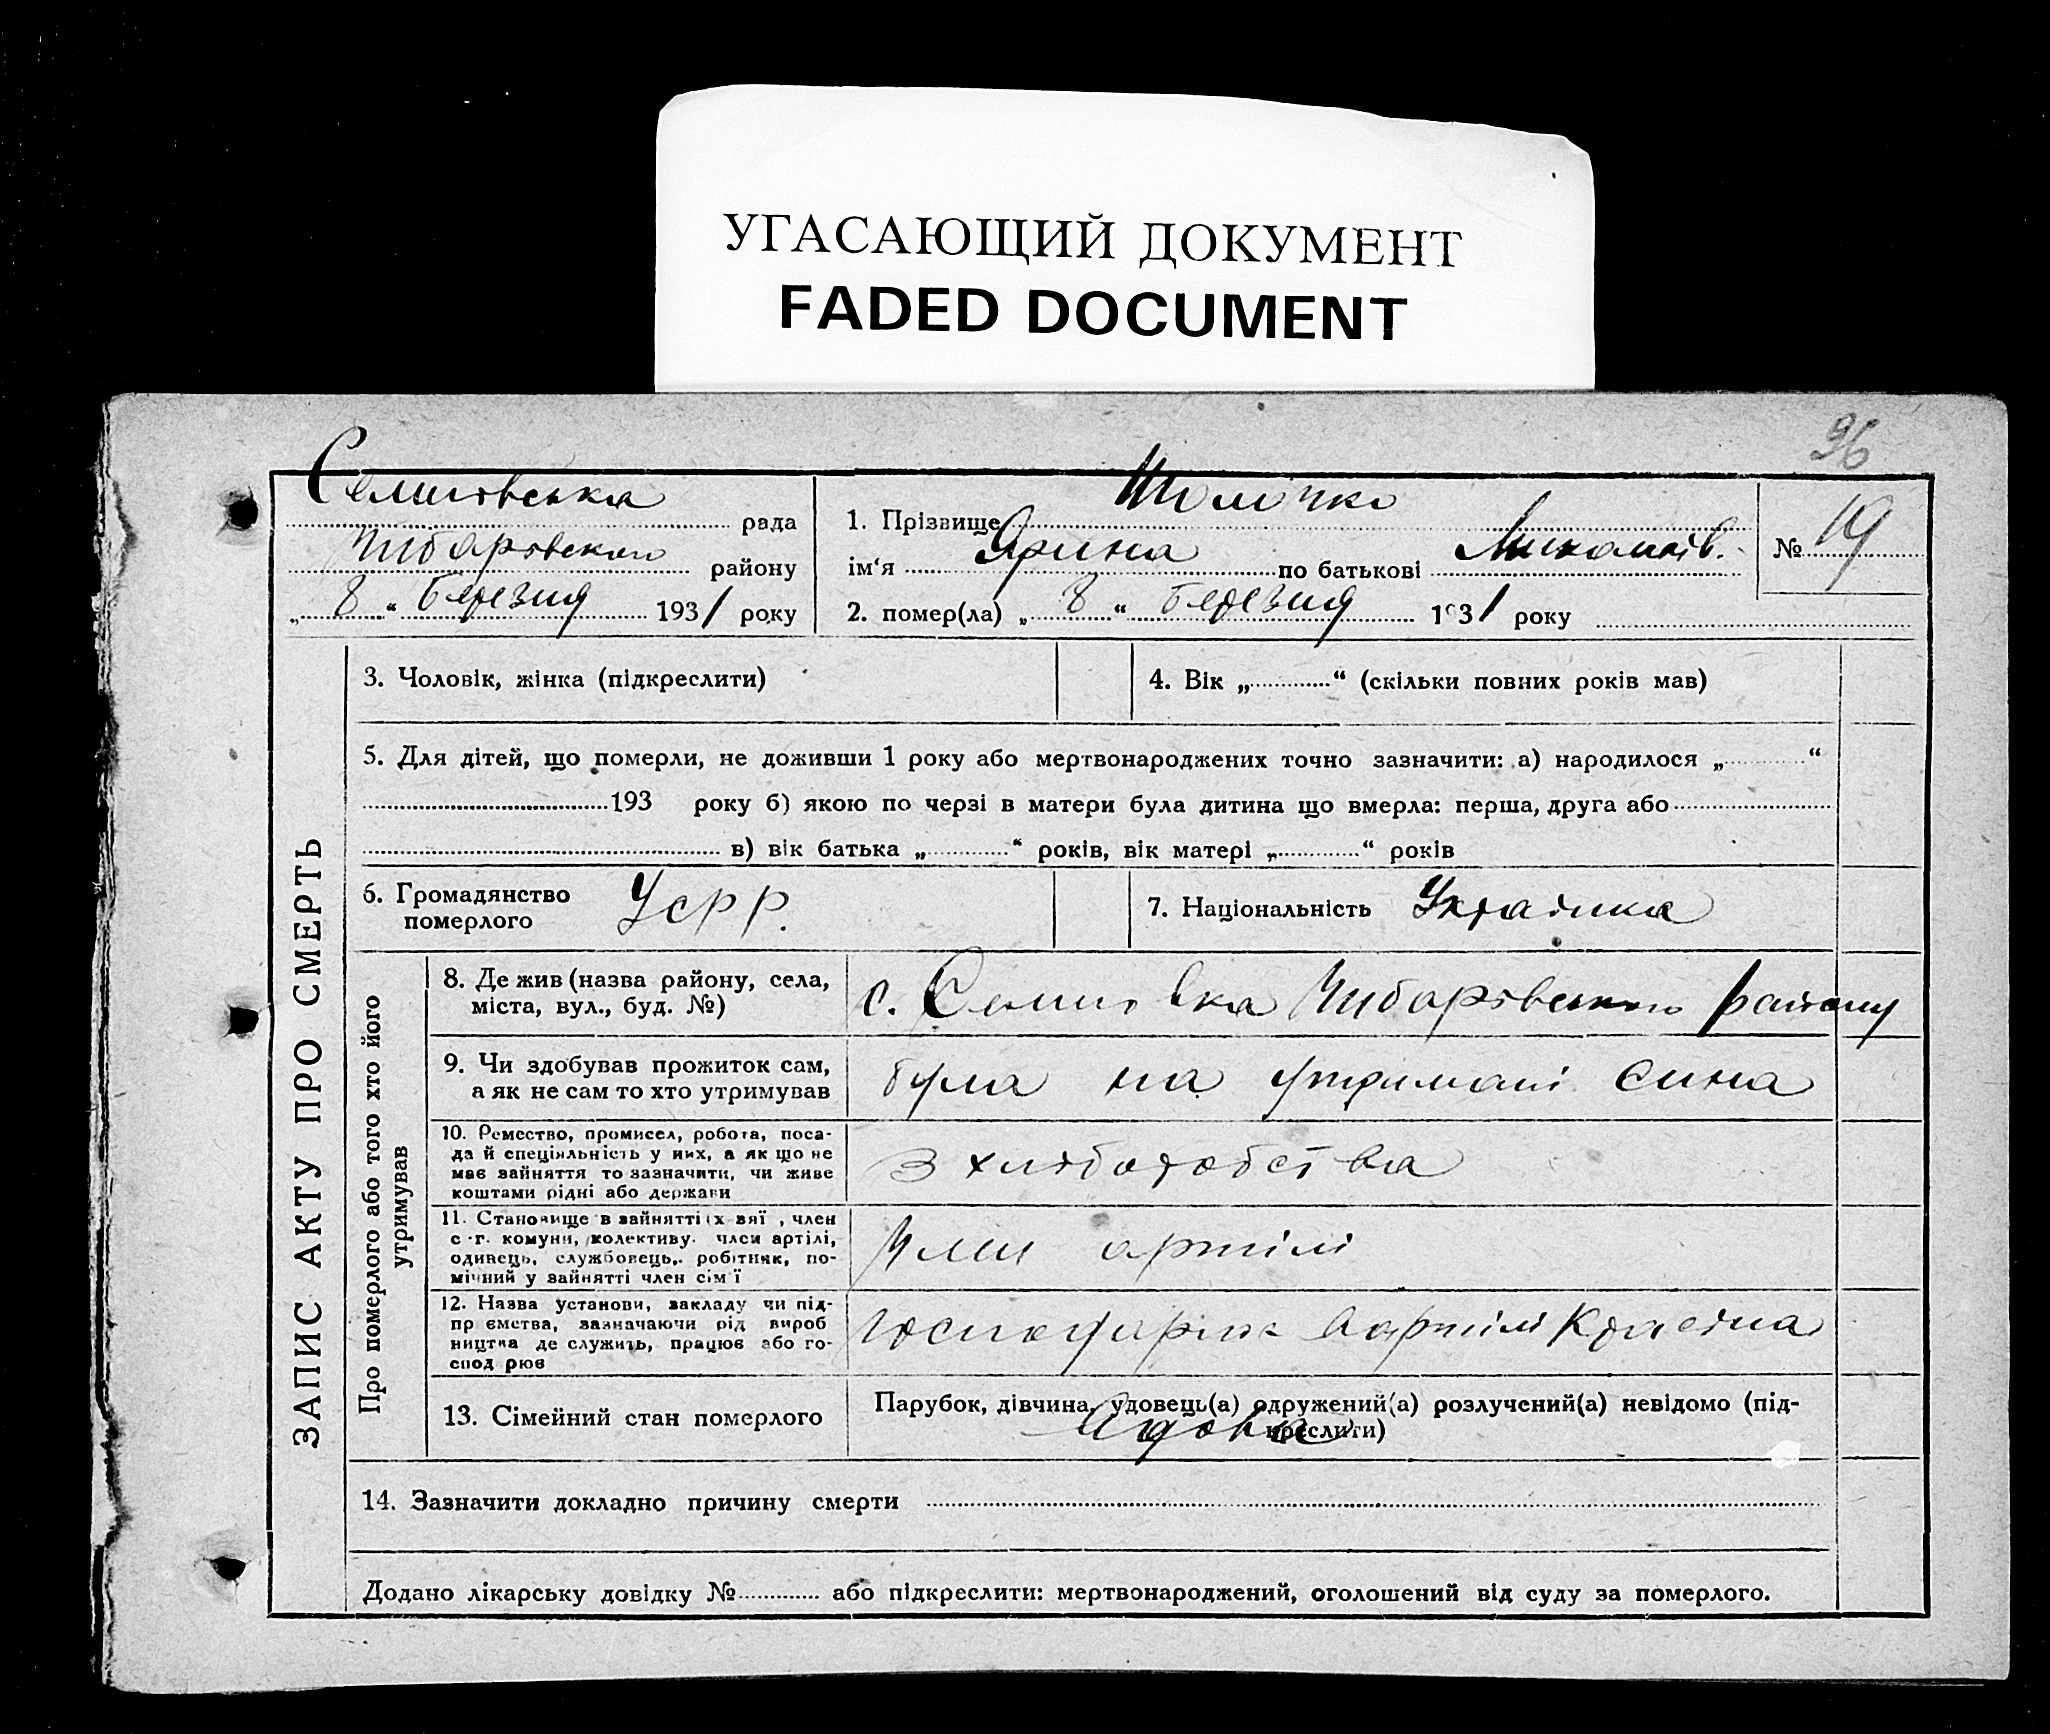 УГАСАЮЩИЙ ДОКУМЕНТ
FADED DOCUMENT
96
рада
району
„ 8 “ березня 1931 року
1. Прізвище
ім‘я Ярина по батькові
2. помер(ла) „ 8 “ березня 1931 року
№ 19
3. Чоловік, жінка (підкреслити)
4. Вік „ “ (скільки повних років мав)
5. Для дітей, що померли, не доживши 1 року або мертвонароджених точно зазначити: а) народилося „ “
193 року б) якою по черзі в матери була дитина що вмерла: перша, друга або
в) вік батька „ “ років, вік матері „ “ років
6. Громадянство
померлого
УСРР.
7. Національність Українка
ЗАПИС АКТУ ПРО СМЕРТЬ
Про померлого або того хто його
утримував
8. Де жив (назва району, села,
міста, вул., буд. №)
с. району
9. Чи здобував прожиток сам,
а як не сам то хто утримував
була на утримані сина
10. Ремество, промисел, робота, поса-
да й спеціяльність у них, а як що не
має зайняття то зазначити, чи живе
коштами рідні або держави
з хліборобства
11. Становище в зайнятті , член
с.-г. комуни, колективу. член артілі,
одинець, службовець, робітник, по-
мічний у зайнятті член сім'ї
Член артілі
12. Назва установи, закладу чи під-
пр ємства, зазначаючи рід вироб
ництва де служить, працює або го-
спод рює
артілі
13. Сімейний стан померлого
Парубок, дівчина, удовець(а) одружений(а) розлучений(а) невідомо (під-
креслити)
Вдова
14. Зазначити докладно причину смерти
Додано лікарську довідку № або підкреслити: мертвонароджений, оголошений від суду за померлого.